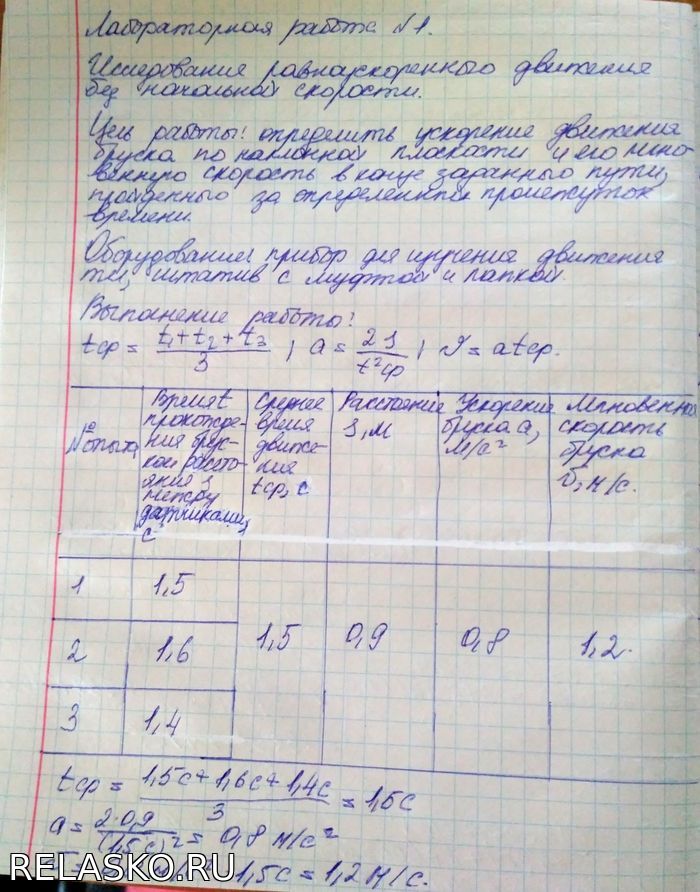 Лабораторная работа №1.
Исследование равноускоренного движения
без начальной скорости.
Цель работы: определить ускорение движения
бруска по наклонной плоскости и его мгно-
венную скорость в конце заданного пути,
пройденного за определенный промежуток
времени.
Оборудование: прибор для изучения движения
тел, штатив с муфтой и лапкой.
Выполнение работы:
tср = (t1 + t2 + t3)/3 ; a = 2S/t²ср ; V = atср.
№ опыта
Время t
прохожде-
ния брус-
ком рассто-
яния S
между
датчиками,
с
Среднее
время
движе-
ния
tср, с
Расстояние
S, м
Ускорение
бруска a,
м/с²
Мгновенная
скорость
бруска
V, м/с.
1 1,5
2 1,6 1,5 0,9 0,8 1,2.
3 1,4
tср = (1,5с + 1,6с + 1,4с)/3 = 1,5с
a = 2·0,9/(1,5с)² = 0,8 м/с²
1,5с = 1,2 м/с.
RELASKO.RU